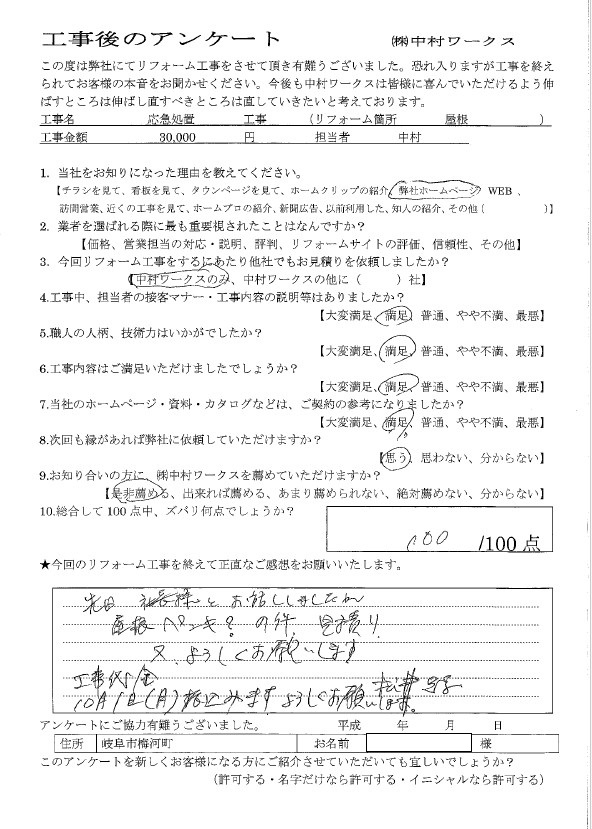 工事後のアンケート ㈱中村ワークス
この度は弊社にてリフォーム工事をさせて頂き有難うございました。恐れ入りますが工事を終え
られてお客様の本音をお聞かせください。今後も中村ワークスは皆様に喜んでいただけるよう伸
ばすところは伸ばし直すべきところは直していきたいと考えております。
工事名 応急処置 工事 (リフォーム箇所 屋根 )
工事金額 30,000 円 担当者 中村
1. 当社をお知りになった理由を教えてください。
【チラシを見て、看板を見て、タウンページを見て、ホームクリップの紹介、弊社ホームページ WEB、
訪問営業、近くの工事を見て、ホームプロの紹介、新聞広告、以前利用した、知人の紹介、その他( )】
2. 業者を選ばれる際に最も重要視されたことはなんですか?
【価格、営業担当の対応・説明、評判、リフォームサイトの評価、信頼性、その他】
3. 今回リフォーム工事をするにあたり他社でもお見積りを依頼しましたか?
【中村ワークスのみ、中村ワークスの他に( )社】
4.工事中、担当者の接客マナー・工事内容の説明等はありましたか?
【大変満足、満足、普通、やや不満、最悪】
5.職人の人柄、技術力はいかがでしたか?
【大変満足、満足、普通、やや不満、最悪】
6.工事内容はご満足いただけましたでしょうか?
【大変満足、満足、普通、やや不満、最悪】
7.当社のホームページ・資料・カタログなどは、ご契約の参考になりましたか?
【大変満足、満足、普通、やや不満、最悪】
8.次回も縁があれば弊社に依頼していただけますか?
【思う、思わない、分からない】
9.お知り合いの方に、㈱中村ワークスを薦めていただけますか?
【是非薦める、出来れば薦める、あまり薦められない、絶対薦めない、分からない】
10.総合して100点中、ズバリ何点でしょうか?
100 /100点
★今回のリフォーム工事を終えて正直なご感想をお願いいたします。
先日 社長様とお話ししましたが
屋根ペンキ?の件 見積り
又、よろしくお願いします
工事代金
10月1日(月)振込みます よろしくお願いします。
アンケートにご協力有難うございました。 平成 年 月 日
住所 岐阜市梅河町 お名前 様
このアンケートを新しくお客様になる方にご紹介させていただいても宜しいでしょうか?
(許可する・名字だけなら許可する・イニシャルなら許可する)